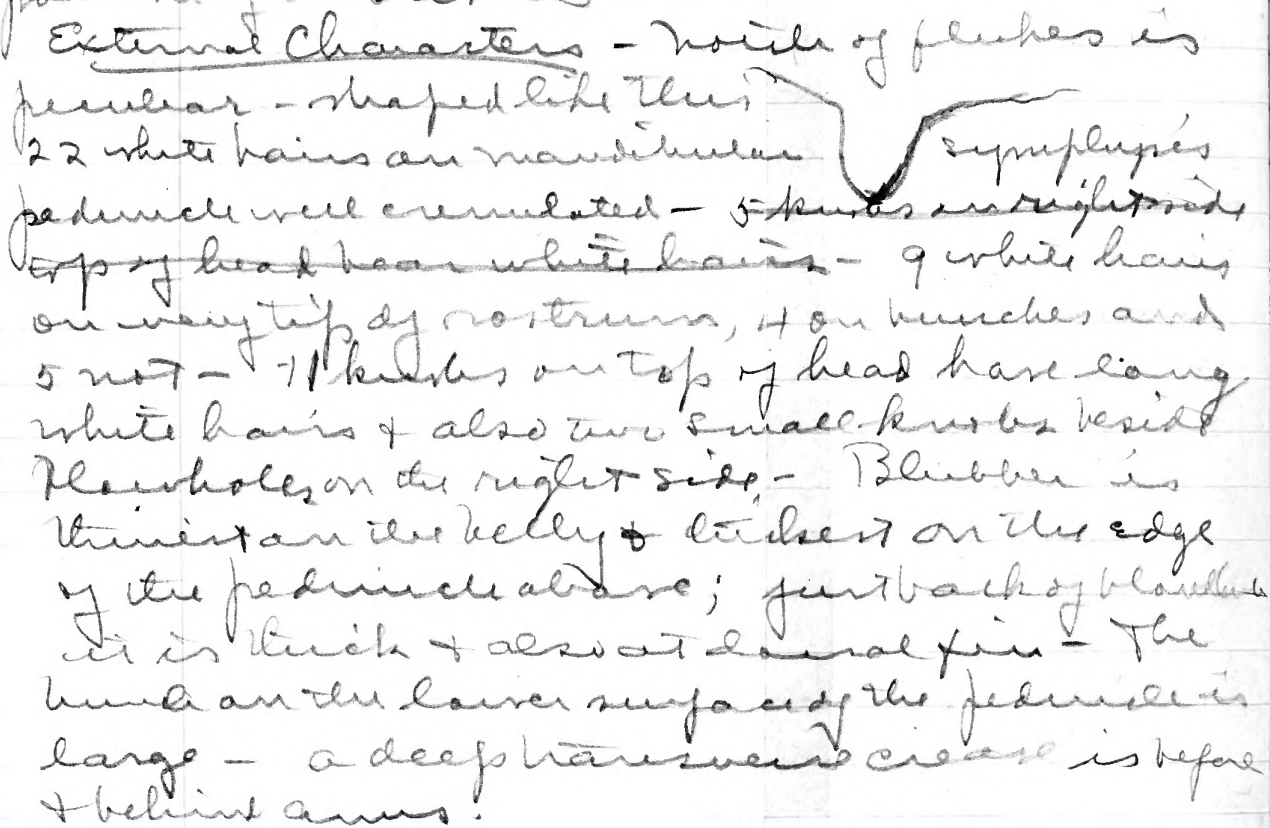 External Characters - notch of flukes is
peculiar - shaped like this
22 white hairs on mandibular symphysis
peduncle well crenulated - 5 knobs on right side
top of head bear white hairs - 9 white hairs
on very tip of rostrum, 4 on bunches and
5 not - 71 knobs on top of head have long
white hairs & also two small knobs beside
blowholes on the right side. - Blubber is
thinest on the belly & thickest on the edge
of the peduncle above; just back of blowhole
it is thick & also at dorsal fin - The
bunch on the lower surface of the peduncle is
large - a deep transverse crease is before
& behind anus.